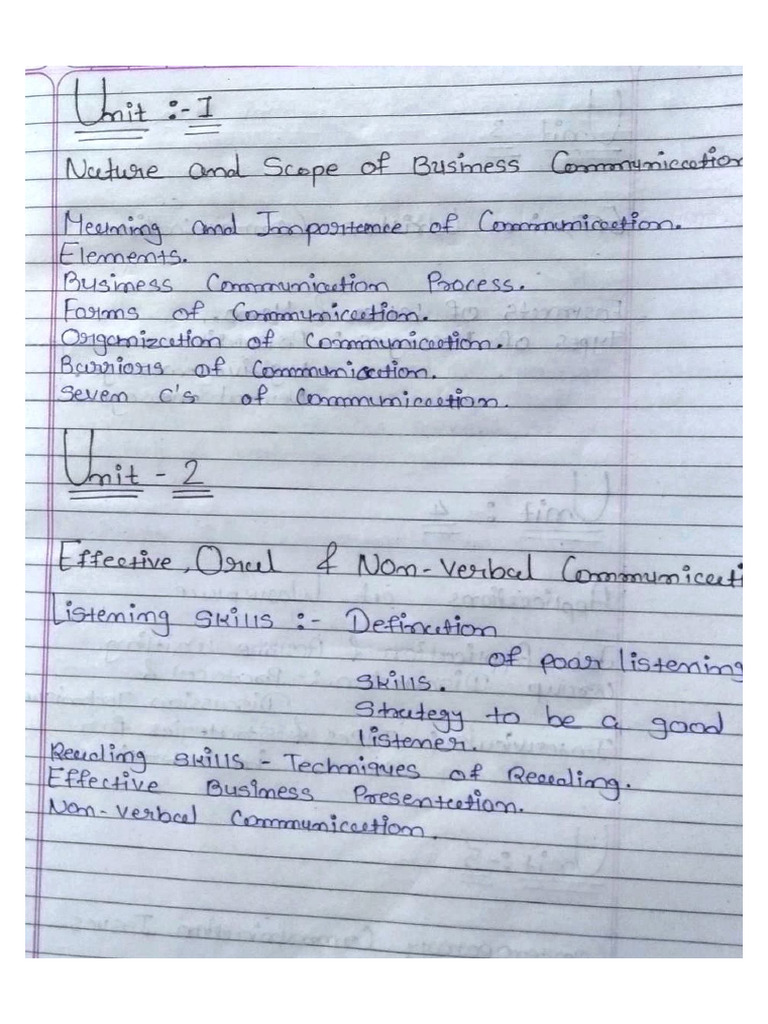 Unit :- I
Nature and Scope of Business Communication
Meaning and Importance of Communication.
Elements.
Business Communication Process.
Forms of Communication.
Organization of Communication.
Barriors of Communication.
Seven C's of Communication.
Unit - 2
Effective, Oral & Non-Verbal Communicati
Listening Skills :- Defination
of poar listening
skills.
Strategy to be a good
listener.
Reading skills - Techniques of Reading.
Effective Business Presentation.
Non-verbal Communication.